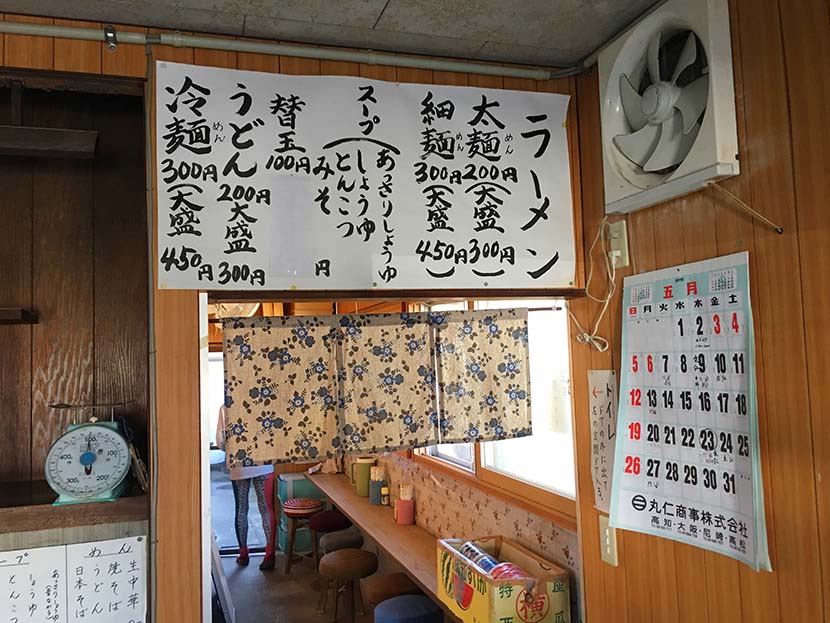 ラーメン
太麺 めん 200円(大盛300円)
細麺 めん 300円(大盛450円)
スープ(あっさりしょうゆ
しょうゆ
とんこつ
みそ
替玉 100円
円
うどん 200円 大盛 300円
冷麺 めん 300円(大盛 450円
五月
日 月 火 水 木 金 土
1 2 3 4
5 6 7 8 9 10 11
12 13 14 15 16 17 18
19 20 21 22 23 24 25
26 27 28 29 30 31
丸仁商事株式会社
高知・大阪・尼崎・高松
←
トイレ
めん
生中華
焼そば
日本そば
うどん
しょうゆ
とんこつ
特
横